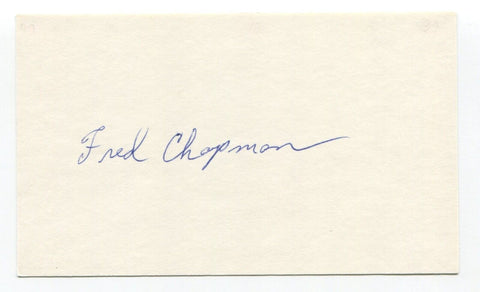 Fred Chapman